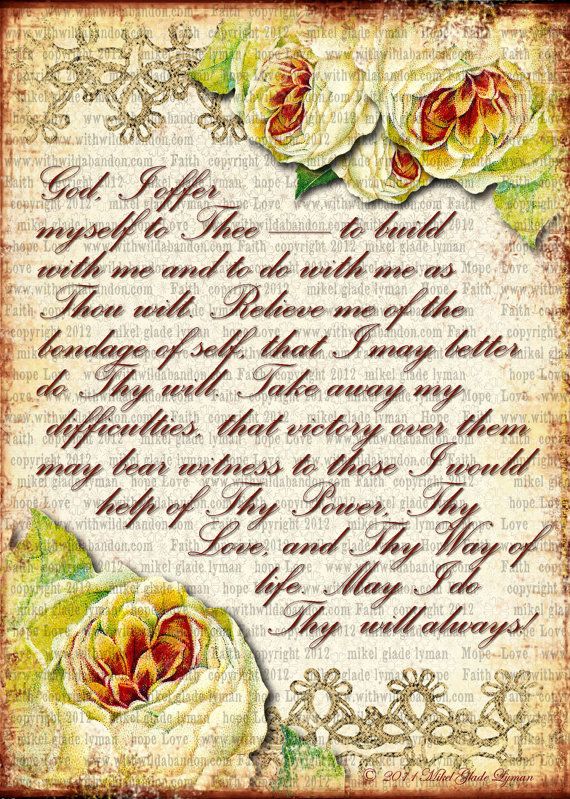 God I offer
myself to Thee —— to build
with me and to do with me as
Thou wilt. Relieve me of the
bondage of self, that I may better
do Thy will. Take away my
difficulties, that victory over them
may bear witness to those I would
help of Thy Power, Thy
Love, and Thy Way of
life. May I do
Thy will always!
© 2011 Mikel Glade Lyman